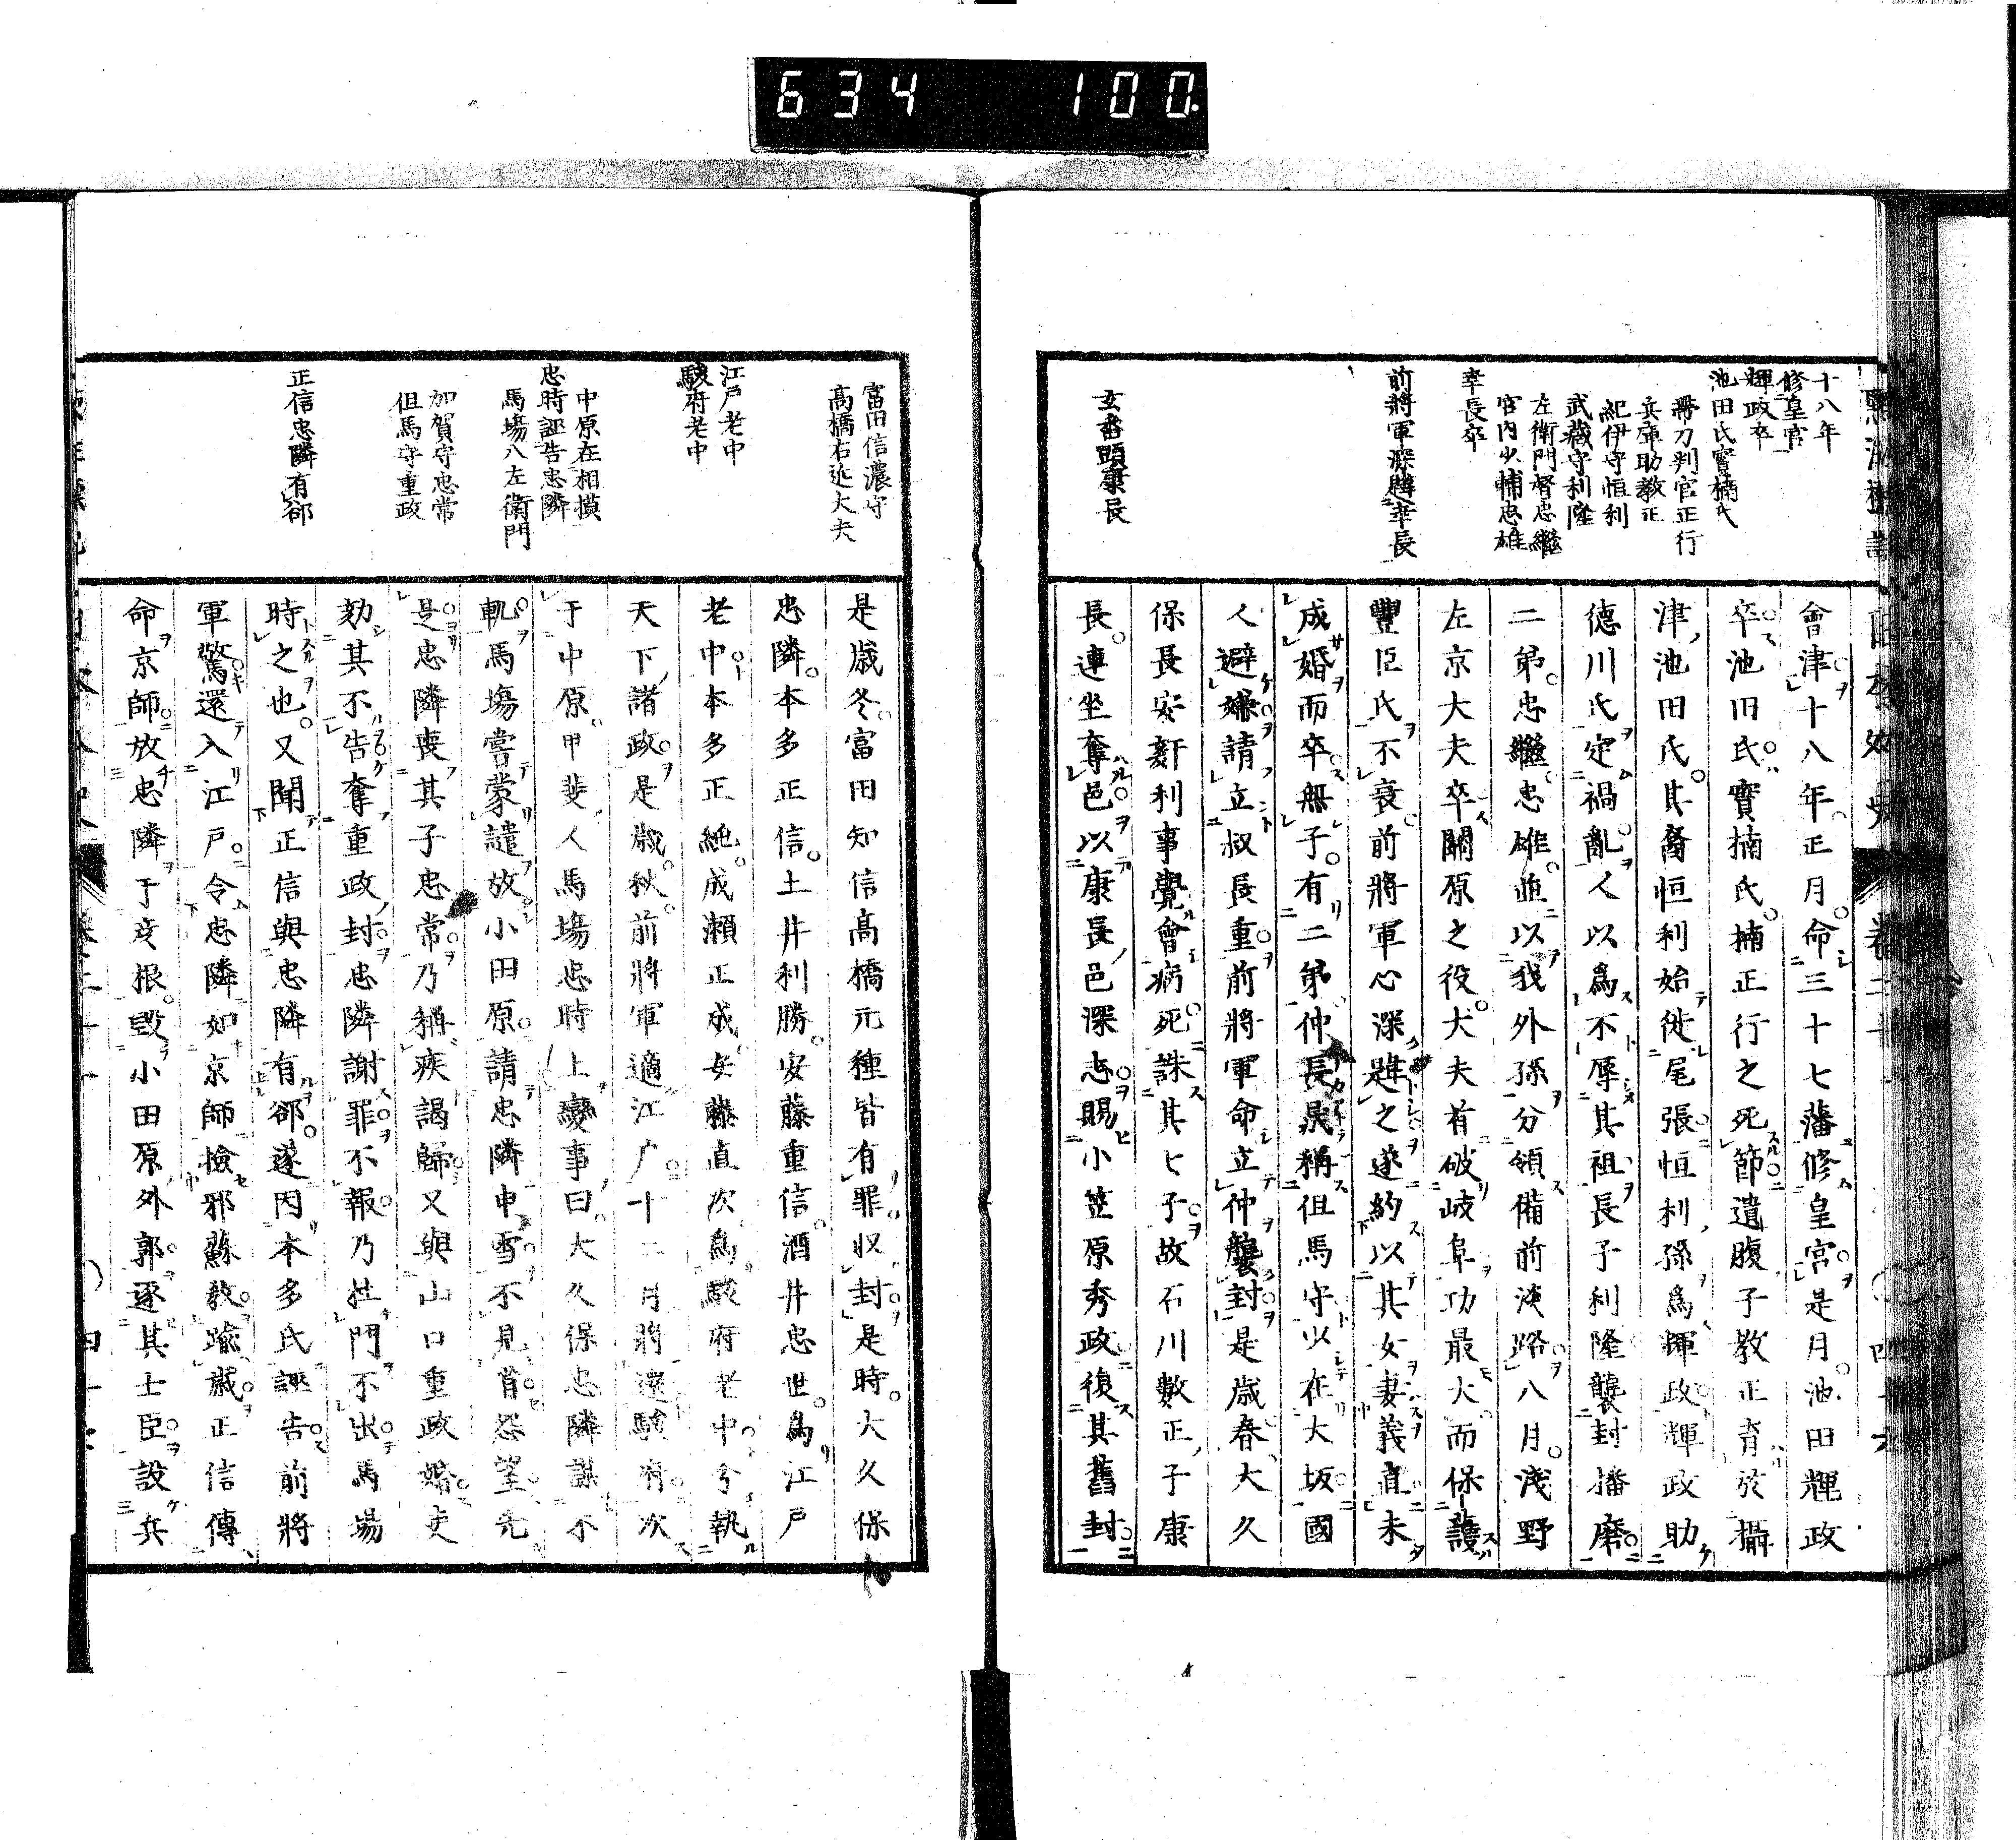 634 100.
十八年
修皇宮
輝政卒
池田氏實楠氏
帶刀判官正行
兵庫助教正
紀伊守恒利
武藏守利隆
左衛門督忠繼
宮内少輔忠雄
幸長卒
前將軍深韙幸長
玄蕃頭康長
會津十八年正月命三十七藩修皇宮是月池田輝政
卒池田氏實楠氏楠正行之死節遺腹子教正育於攝
津池田氏其裔恒利始徙尾張恒利孫爲輝政輝政助
德川氏定禍亂人以爲不辱其祖長子利隆襲封播磨
二弟忠繼忠雄並以我外孫分領備前淡路八月淺野
左京大夫卒關原之役大夫首破岐阜功最大而保護
豐臣氏不衰前將軍心深韙之遂約以其女妻義直未
成婚而卒無子有二弟仲長晟稱但馬守以在大坂國
人避嫌請立叔長重前將軍命立仲襲封是歳春大久
保長安姧利事覺會病死誅其七子故石川數正子康
長連坐奪邑以康長邑深志賜小笠原秀政復其舊封
富田信濃守
高橋右近大夫
江戸老中
駿府老中
中原在相摸
忠時誣告忠隣
馬場八左衛門
加賀守忠常
但馬守重政
正信忠隣有郤
是歳冬富田知信高橋元種皆有罪收封是時大久保
忠隣本多正信土井利勝安藤重信酒井忠世爲江戸
老中本多正純成瀨正成安藤直次爲駿府老中分執
天下諸政是歳秋前將軍適江戸十二月將還駿府次
于中原甲斐人馬場忠時上變事曰大久保忠隣謀不
軌馬場嘗蒙譴放小田原請忠隣申雪不見省怨望先
是忠隣喪其子忠常乃稱疾謁歸又與山口重政婚吏
劾其不告奪重政封忠隣謝罪不報乃杜門不出馬場
時之也又聞正信與忠隣有郤遂因本多氏誣告前將
軍驚還入江戸令忠隣如京師撿邪蘇教踰歳正信傳
命京師放忠隣于彦根毀小田原外郭逐其士臣設兵